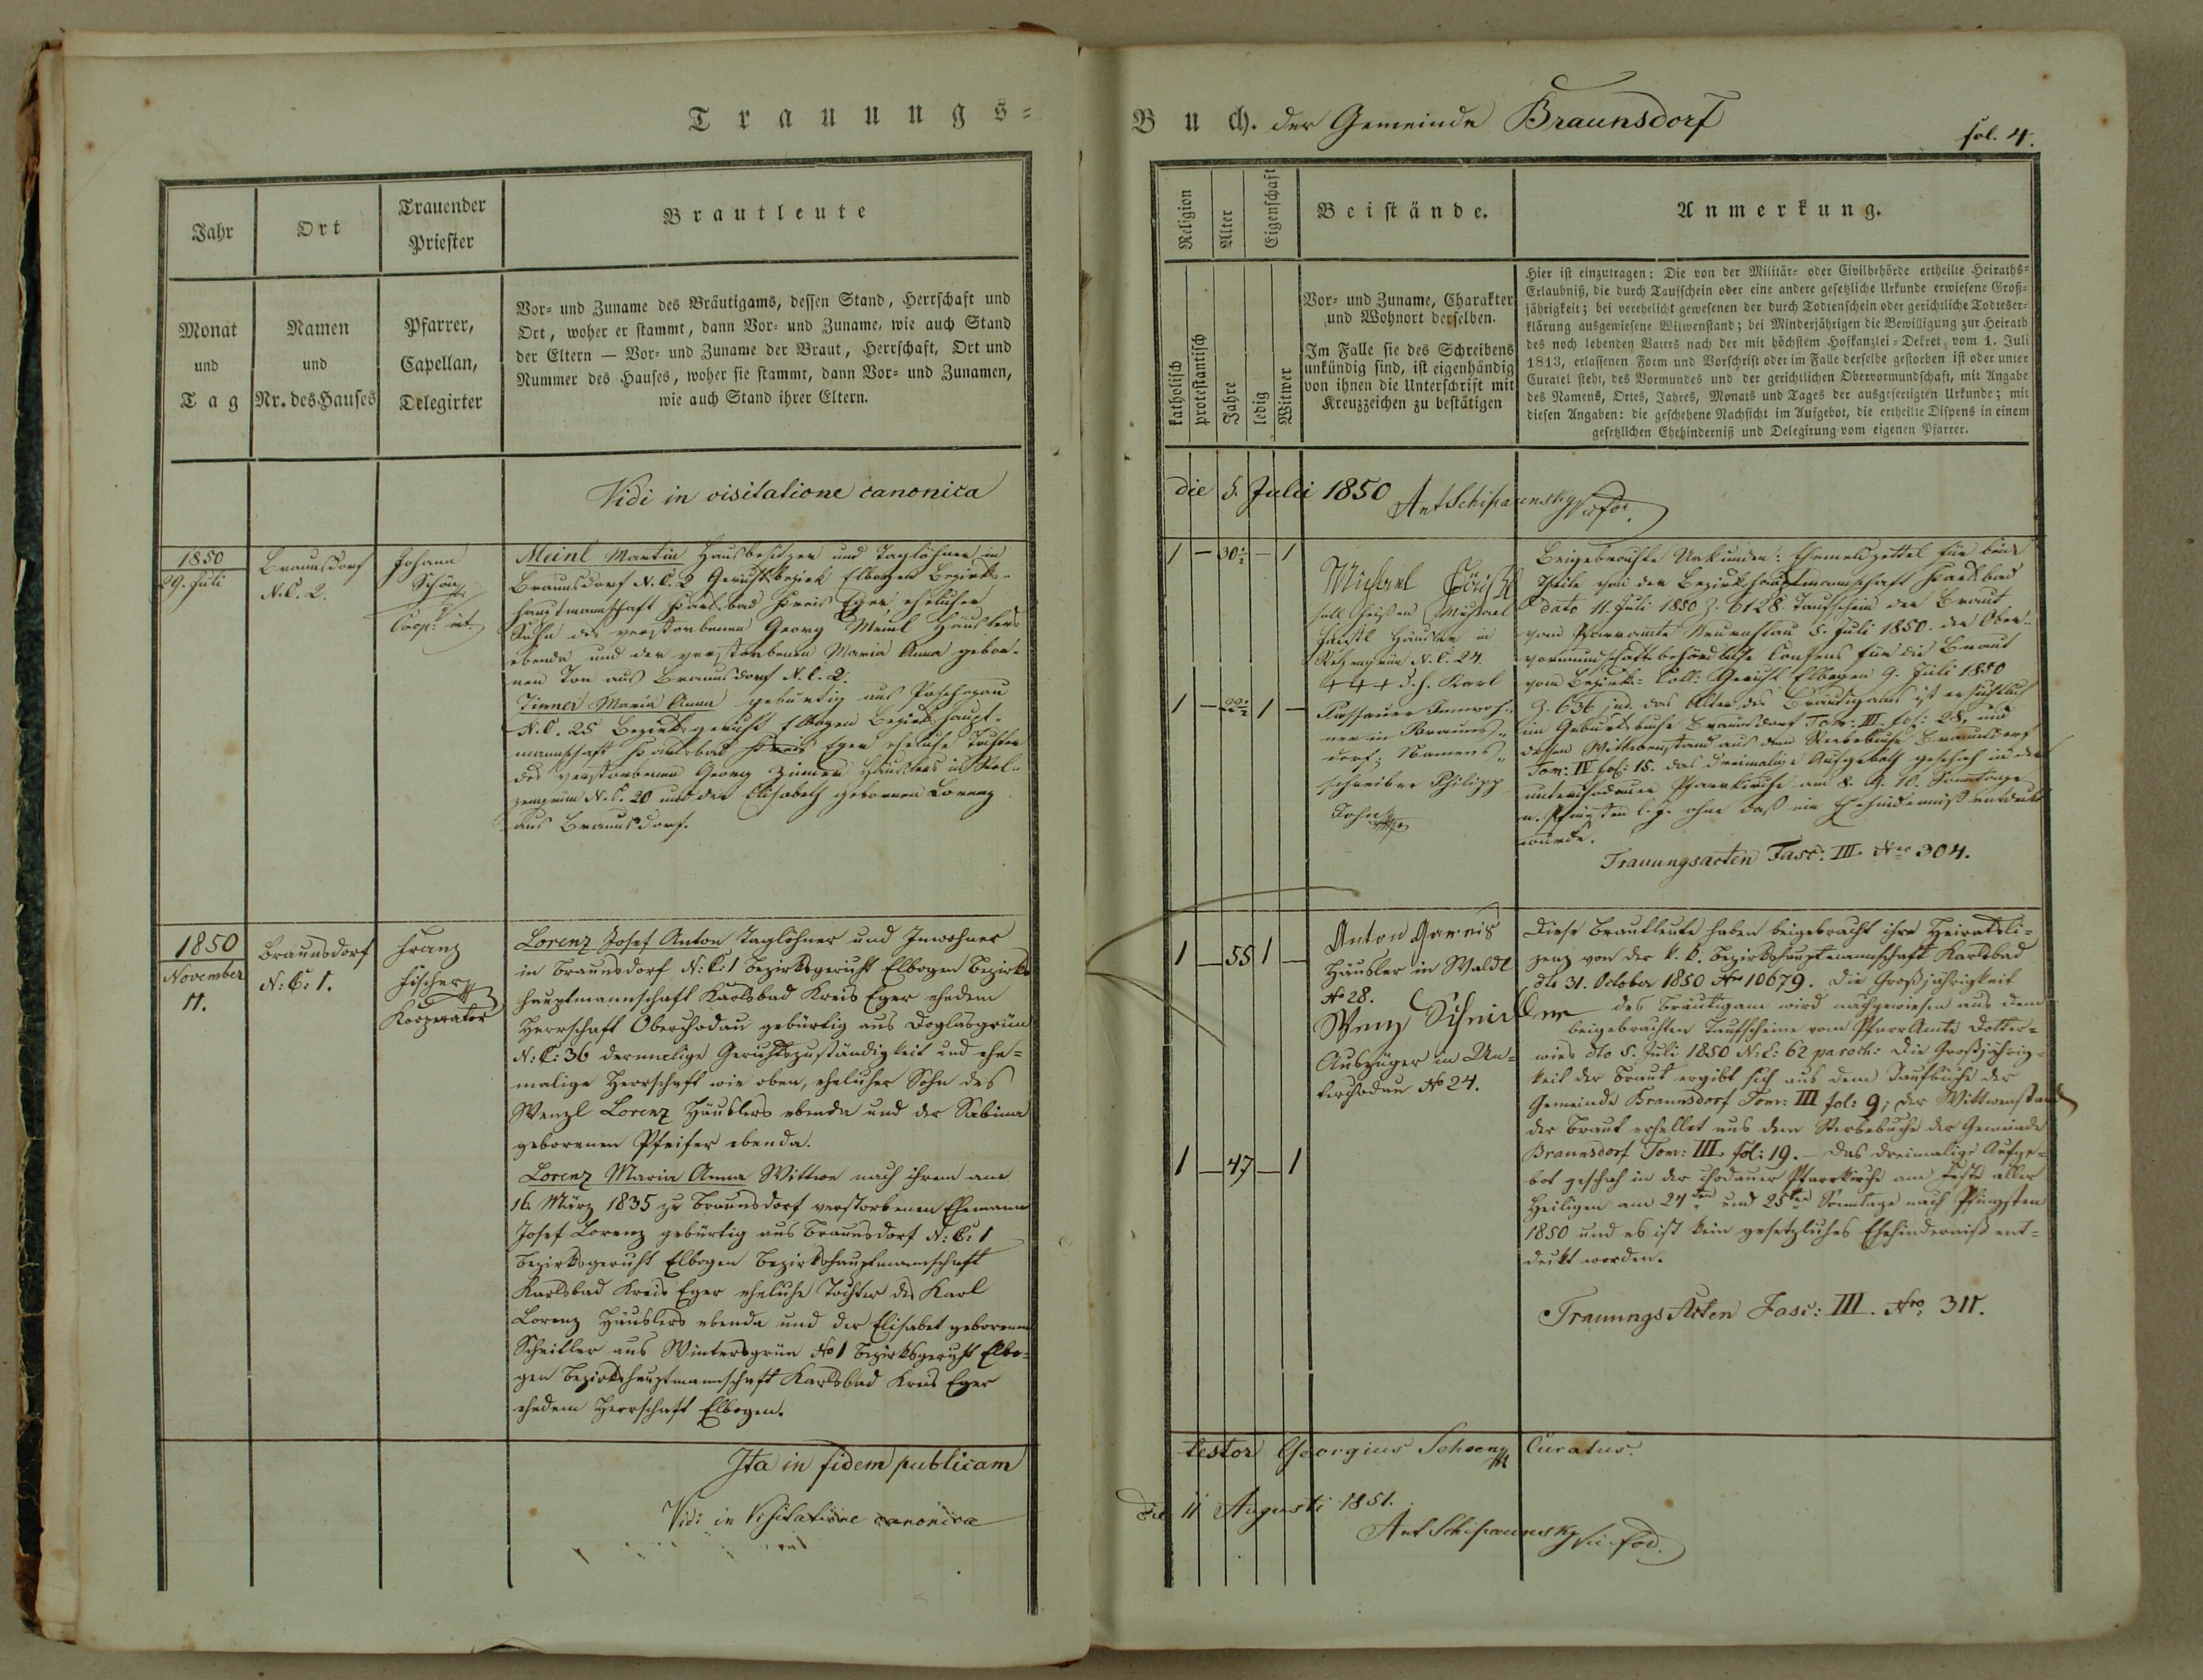 Trauungs=
Jahr
Ort
Trauender
Priester
Brautleute
Monat
und
Tag
Namen
und
Nr. des Hauses
Pfarrer,
Capellan,
Delegirter
Vor= und Zuname des Bräutigams, dessen Stand, Herrschaft und
Ort, woher er stammt, dann Vor= und Zuname, wie auch Stand
der Eltern — Vor= und Zuname der Braut, Herrschaft, Ort und
Nummer des Hauses, woher sie stammt, dann Vor= und Zunamen,
wie auch Stand ihrer Eltern.
Vidi in visitatione canonica
1850
29. Juli
Braunsdorf
N.C. 2.
Johann
Schön
Coop.
Meinl Martin Hausbesitzer und Taglöhner in
Braunsdorf N.C. 2 Gerichtsbezirk Elbogen Bezirks=
hauptmannschaft Karlsbad Kreis Eger, ehelicher
Sohn des verstorbenen Georg Meinl Häuslers
ebenda und der verstorbenen Maria Anna gebor=
nen aus Braunsdorf N.C. 2.
Zinner Maria Anna gebürtig aus Poschezau
N.C. 25 Bezirksgericht Elbogen Bezirkshaupt=
mannschaft Karlsbad Kreis Eger eheliche Tochter
des verstorbenen Georg Zinner Häuslers in Stel=
zengrün N.C. 20 und der Elisabeth gebornen Lorenz
aus Braunsdorf.
1850
November
11.
Braunsdorf
N:C: 1.
Franz
Fischer
Kooperator
Lorenz Josef Anton Taglöhner und Inwohner
in Braunsdorf N:C: 1 Bezirksgericht Elbogen Bezirks
hauptmannschaft Karlsbad Kreis Eger ehedem
Herrschaft Oberchodau gebürtig aus Doglasgrün
N:C: 36 dermalige Gerichtszuständigkeit und ehe=
malige Herrschaft wie oben, ehelicher Sohn des
Wenzl Lorenz Häuslers ebenda und der Sabina
geborenen Pfeifer ebenda.
Lorenz Maria Anna Wittwe nach ihrem am
16. März 1835 zu Braunsdorf verstorbenen Ehemann
Josef Lorenz gebürtig aus Braunsdorf N:C: 1
Bezirksgericht Elbogen Bezirkshauptmannschaft
Karlsbad Kreis Eger eheliche Tochter des Karl
Lorenz Häuslers ebenda und der Elisabet geborenen
Scheitler aus Wintersgrün No 1 Bezirksgericht Elbo=
gen Bezirkshauptmannschaft Karlsbad Kreis Eger
ehedem Herrschaft Elbogen.
Ita in fidem publicam
Vidi in Visitatione canonica
Buch. der Gemeinde Braunsdorf
fol. 4.
Religion
Alter
Eigenschaft
Beistände.
Anmerkung.
katholisch
protestantisch
Jahre
ledig
Witwer
Vor= und Zuname, Charakter
und Wohnort derselben.
Im Falle sie des Schreibens
unkündig sind, ist eigenhändig
von ihnen die Unterschrift mit
Kreuzzeichen zu bestätigen
Hier ist einzutragen: Die von der Militär= oder Civilbehörde ertheilte Heiraths=
Erlaubniß, die durch Taufschein oder eine andere gesetzliche Urkunde erwiesene Groß=
jährigkeit; bei verehelicht gewesenen der durch Todtenschein oder gerichtliche Todteser=
klärung ausgewiesene Witwenstand; bei Minderjährigen die Bewilligung zur Heirath
des noch lebenden Vaters nach der mit höchstem Hofkanzlei=Dekret vom 1. Juli
1813, erlassenen Form und Vorschrift oder im Falle derselbe gestorben ist oder unter
Curatel steht, des Vormundes und der gerichtlichen Obervormundschaft, mit Angabe
des Namens, Ortes, Jahres, Monats und Tages der ausgefertigten Urkunde; mit
diesen Angaben: die geschehene Nachsicht im Aufgebot, die ertheilte Dispens in einem
gesetzlichen Ehehinderniß und Delegirung vom eigenen Pfarrer.
die 5. Julii 1850 Ant Schipaunsky
1 — 30½ — 1
Michael
soll heißen Michael
Häusler in
Stelzengrün N.C. 24.
+++ d. h. Karl
Passauer Inwoh=
ner in Brauns=
dorf; Namens=
schreiber Philipp
John
1 — 22½ 1 —
Beigebrachte Urkunden: Ehemeldzettel für beide
Theile von der Bezirkshauptmannschaft Karlsbad
dato 11. Juli 1850 Z. 6128. Taufschein der Braut
vom Pfarramte Neurohlau 5. Juli 1850. der Ober=
vormundschaftsbehördliche Consens für die Braut
vom Bezirks= Coll: Gericht Elbogen 9. Juli 1850
Z. 636 jud. das Alter des Bräutigams ist ersichtlich
im Geburtsbuche Braunsdorf Tom: III. fol: 28, und
dessen Wittwenstand aus dem Sterbebuche Braunsdorf
Tom: IV fol: 15. das dreimalige Aufgeboth geschah in der
Pfarrkirche am 8. 9. 10. Sonntage
n. Pfingsten l. J. ohne daß ein Ehehinderniß entdeckt
wurde.
Trauungsacten Fasc: III. Nro 304.
1 — 55 1 —
Anton
Häusler in Waldl
No 28.
Wenz Schneider
Auszüger in Un=
terchodau No 24.
1 — 47 — 1
Diese Brautleute haben beigebracht ihre Heiratsli=
zenz von der k. k. Bezirkshauptmannschaft Karlsbad
dto 31. October 1850 Nro 10679. Die Großjährigkeit
des Bräutigam wird nachgewiesen aus dem
beigebrachten Taufscheine vom PfarrAmte Dotter=
wies dto 5. Juli 1850 N:C: 62 paroch: Die Großjährig=
keit der Braut ergibt sich aus dem Taufbuche der
Gemeinde Braunsdorf Tom: III fol: 9; der Wittwenstand
der Braut erhellet aus dem Sterbebuche der Gemeinde
Braunsdorf Tom: III. fol: 19. — das dreimalige Aufge=
bot geschah in der Chodauer Pfarrkirche am Feste aller
Heiligen am 24ten und 25ten Sonntage nach Pfingsten
1850 und es ist kein gesetzliches Ehehinderniß ent=
deckt worden.
Trauungs Akten Fasc: III. Nro: 311.
testor Georgius Schoen Curatus.
die 11 Augusti 1851.
Ant Schipaunsky